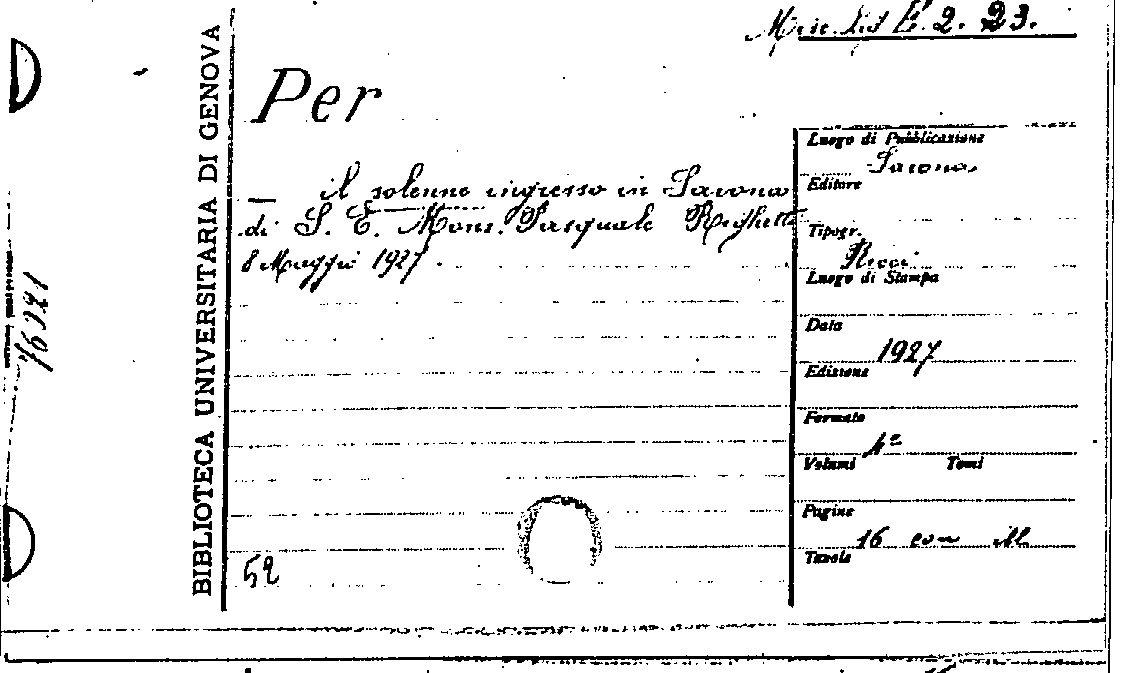 Misc. Lig E. 2. 23.
BIBLIOTECA UNIVERSITARIA DI GENOVA
Per
— il solenne ingresso in Savona
di S. E. Mons. Pasquale Righetti
8 Maggio 1927.
52
Luogo di Pubblicazione
Savona
Editore
Tipogr.
Ricci
Luogo di Stampa
Data
1927
Edizione
Formato
4º
Volumi Tomi
Pagine
16 con ill
Tavole